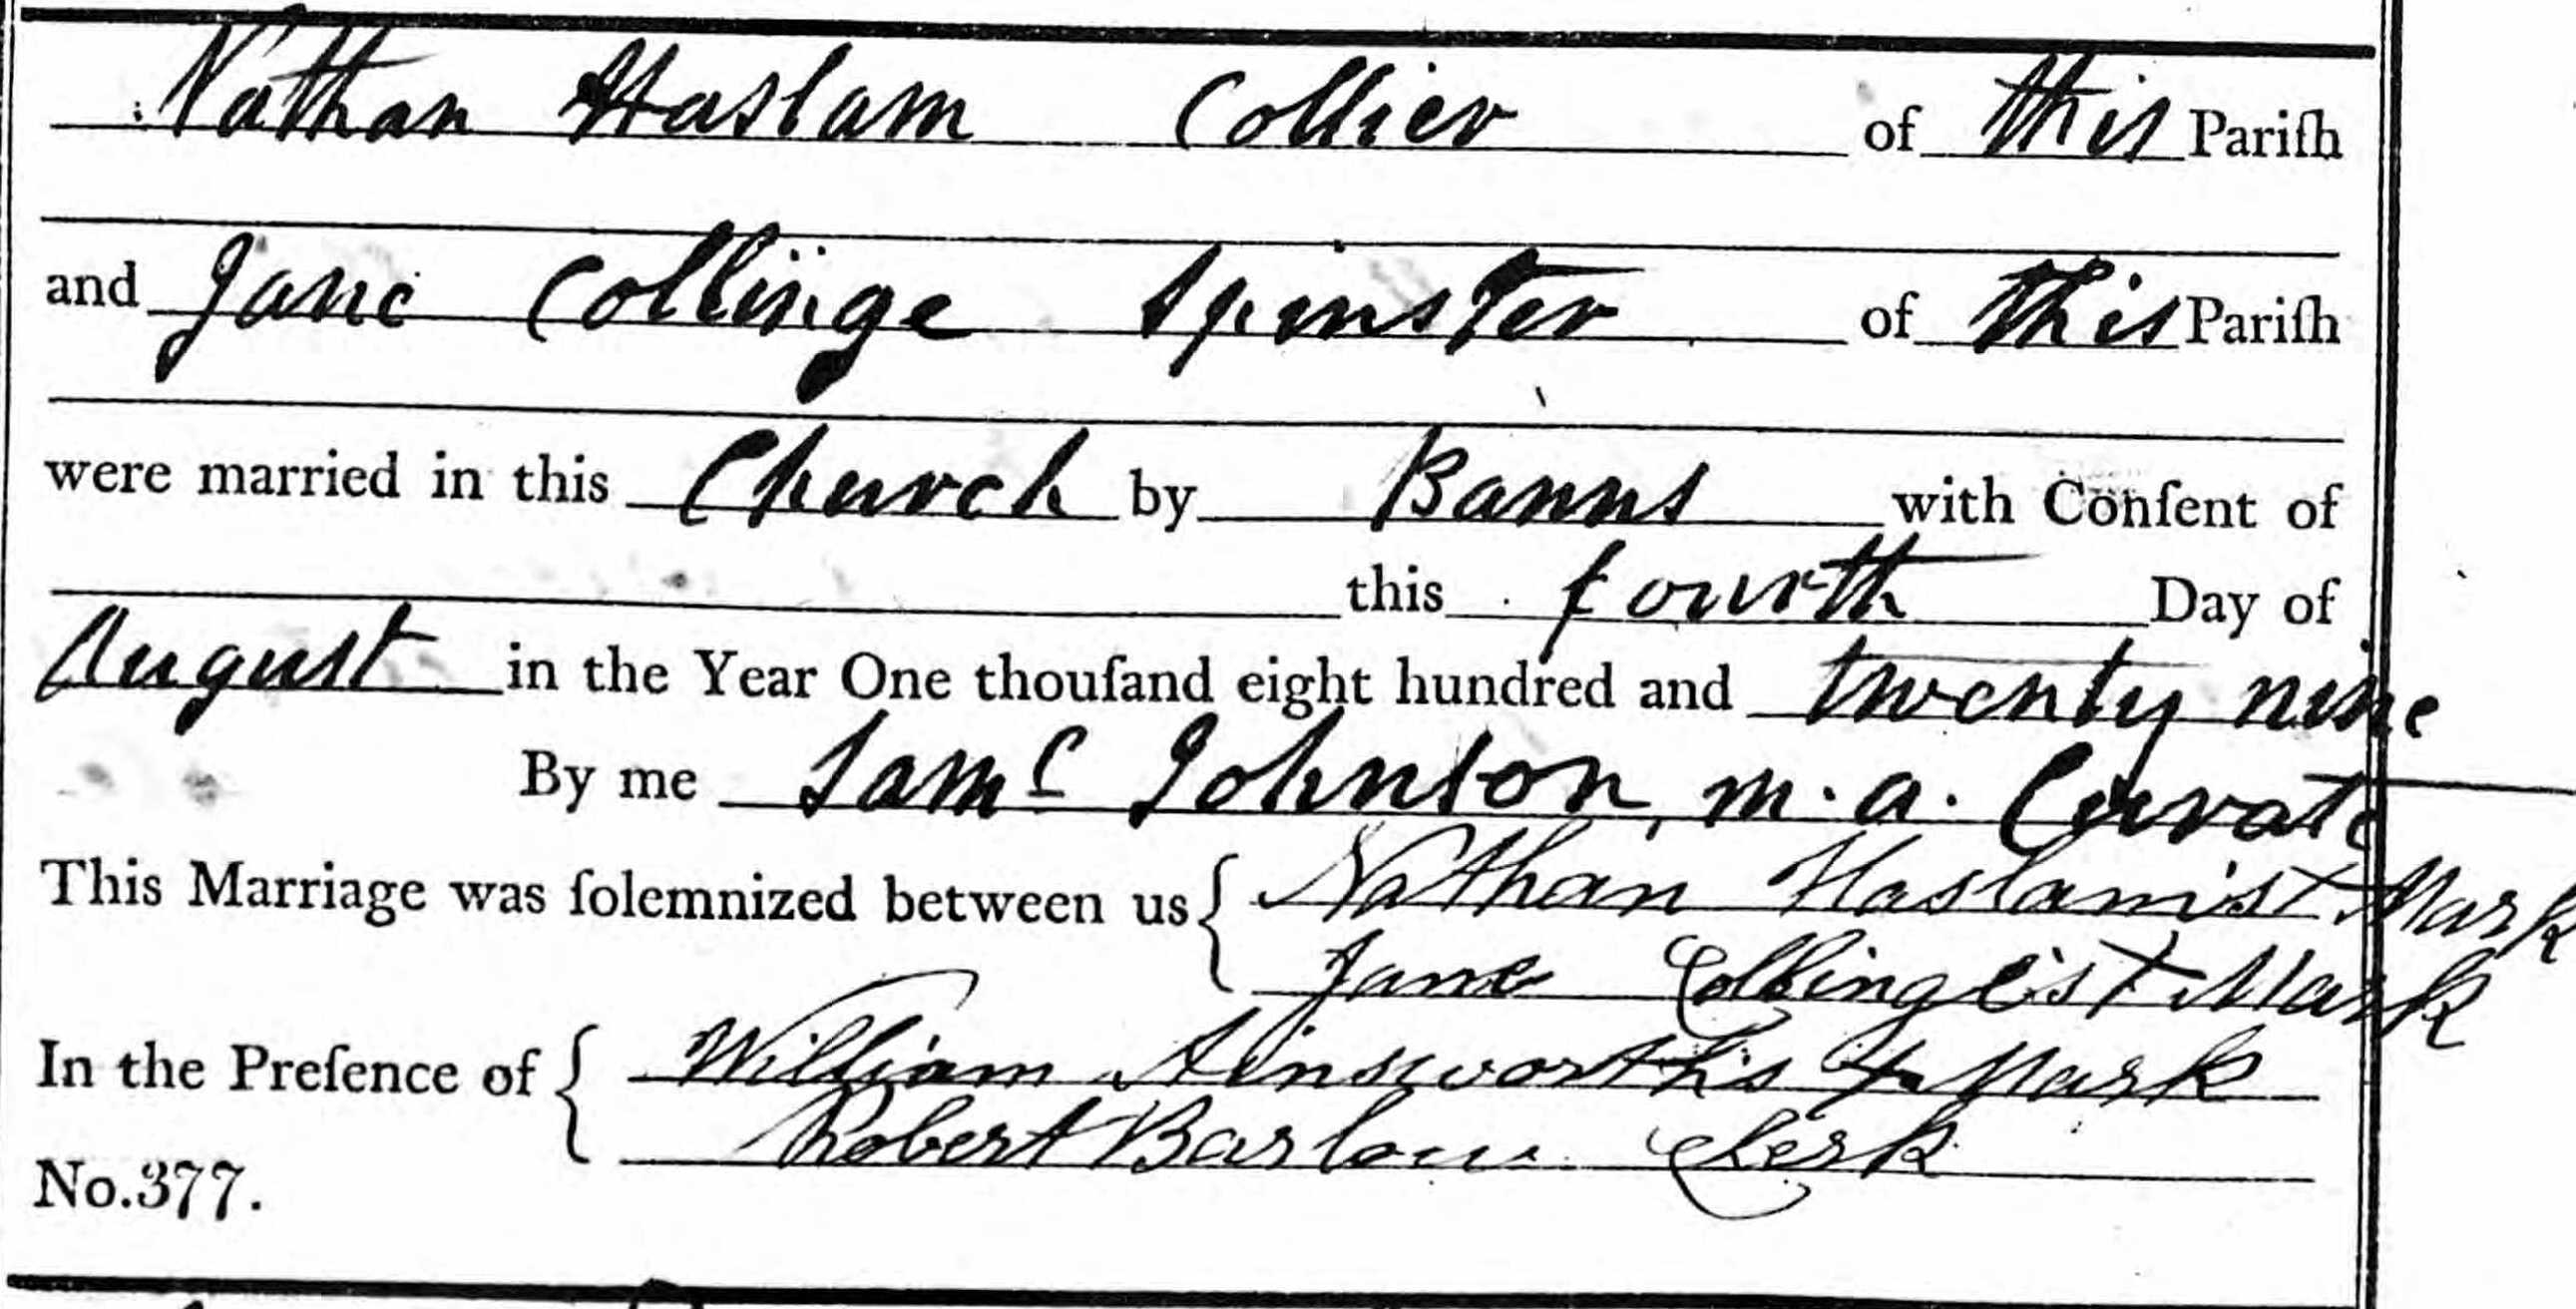 Nathan Haslam Collier of this Pariſh
and Jane Collinge Spinster of this Pariſh
were married in this Church by Banns with Conſent of
this fourth Day of
August in the Year One thouſand eight hundred and twenty nine
By me Saml Johnson, m.a. Curate
This Marriage was ſolemnized between us { Nathan Haslam's + Mark
Jane Collinge's + Mark
In the Preſence of { William Ainsworth's + Mark
Robert Barlow Clerk
No.377.